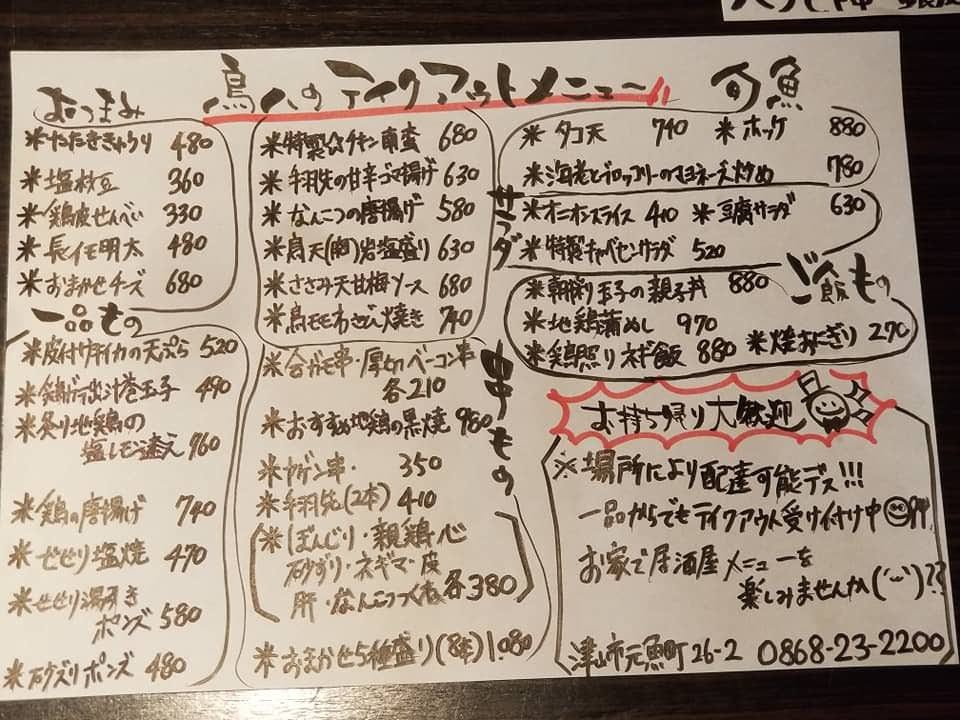 鳥八のテイクアウトメニュー
おつまみ
※たたききゅうり 480
※塩枝豆 360
※鶏皮せんべい 330
※長イモ明太 480
※おまかせチーズ 680
一品もの
※皮付ヤリイカの天ぷら 520
※鶏ガラ出汁巻玉子 490
※炙り地鶏の
塩レモン添え 960
※鶏の唐揚げ 740
※せせり塩焼 470
※せせり湯引き
ポンズ 580
※砂ズリポンズ 480
※特製☆チキン南蛮 680
※手羽先の甘辛ゴマ揚げ 630
※なんこつの唐揚げ 580
※鳥天(胸)岩塩盛り 630
※ささみ天甘梅ソース 680
※鳥モモわさび焼き 740
串もの
※合ガモ串・厚切ベーコン串
各210
※おすすめ地鶏の黒焼 980
※ヤゲン串・ 350
※手羽先(2本) 410
※ぼんじり・親鶏・心
砂ずり・ネギマ・皮
肝・なんこつつくね 各380
※おまかせ5種盛り(8本) 1.080
旬魚
※タコ天 740 ※ホッケ 880
※海老とブロッコリーのマヨネーズ炒め 780
サラダ
※オニオンスライス 410 ※豆腐サラダ 630
※特製キャベセンサラダ 520
ご飯もの
※朝捥り玉子の親子丼 880
※地鶏蒲めし 970
※鶏照りネギ飯 880 ※焼おにぎり 270
お持ち帰り大歓迎
※場所により配達可能デス!!!
一品からでもテイクアウト受け付け中
お家で居酒屋メニューを
楽しみませんか(´⌣`)??
津山市元魚町26-2 0868-23-2200